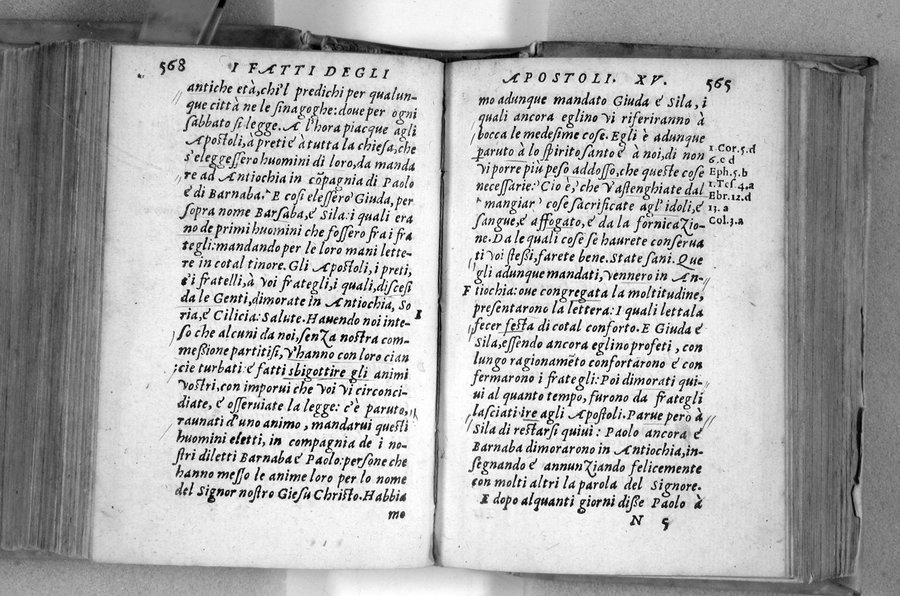 568
I FATTI DEGLI
antiche età, chi'l predichi per qualun-
que città ne le sinagoghe: doue per ogni
sabbato si legge. A l'hora piacque agli
Apostoli, à preti è à tutta la chiesa, che
s'eleggessero huomini di loro, da manda
re ad Antiochia in cõpagnia di Paolo
é di Barnaba. E cosi elessero Giuda, per
sopra nome Barsaba, é Sila: i quali era
no de primi huomini che fossero fra i fra
tegli: mandando per le loro mani lette-
re in cotal tinore. Gli Apostoli, i preti,
é i fratelli, à voi frategli, i quali, discesi
da le Genti, dimorate in Antiochia, So
ria, é Cilicia: Salute. Hauendo noi inte-
so che alcuni da noi, senza nostra com-
messione partitisi, v'hanno con loro cian
cie turbati é fatti sbigottire gli animi
vostri, con imporui che voi vi circonci-
diate, é osseruiate la legge: c'è paruto,
raunati d'uno animo, mandarui questi
huomini eletti, in compagnia de i no-
stri diletti Barnaba é Paolo: persone che
hanno messo le anime loro per lo nome
del Signor nostro Giesu Christo. Habbia
mo
APOSTOLI. XV.
565
mo adunque mandato Giuda é Sila, i
quali ancora eglino vi riferiranno à
bocca le medesime cose. Egli è adunque
paruto à lo spirito santo é à noi, di non
vi porre più peso addosso, che queste cose
necessarie: Cio è, che v'astenghiate dal
mangiar cose sacrificate agl'idoli, é
sangue, é affogato, é da la fornicazio-
ne. Da le quali cose se haurete conserua
ti voi stessi, farete bene. State sani. Que
gli adunque mandati, vennero in An-
tiochia: oue congregata la moltitudine,
presentarono la lettera: I quali lettala
fecer festa di cotal conforto. E Giuda é
Sila, essendo ancora eglino profeti, con
lungo ragionamẽto confortarono é con
fermarono i frategli: Poi dimorati qui-
ui al quanto tempo, furono da frategli
lasciati ire agli Apostoli. Parue però à
Sila di restarsi quiui: Paolo ancora é
Barnaba dimorarono in Antiochia, in-
segnando é annunziando felicemente
con molti altri la parola del Signore.
E dopo alquanti giorni disse Paolo à
N 5
1. Cor. 5. d
6. c d
Eph. 5. b
1. Tes. 4. a
Ebr. 12. d
13. a
Col. 3. a